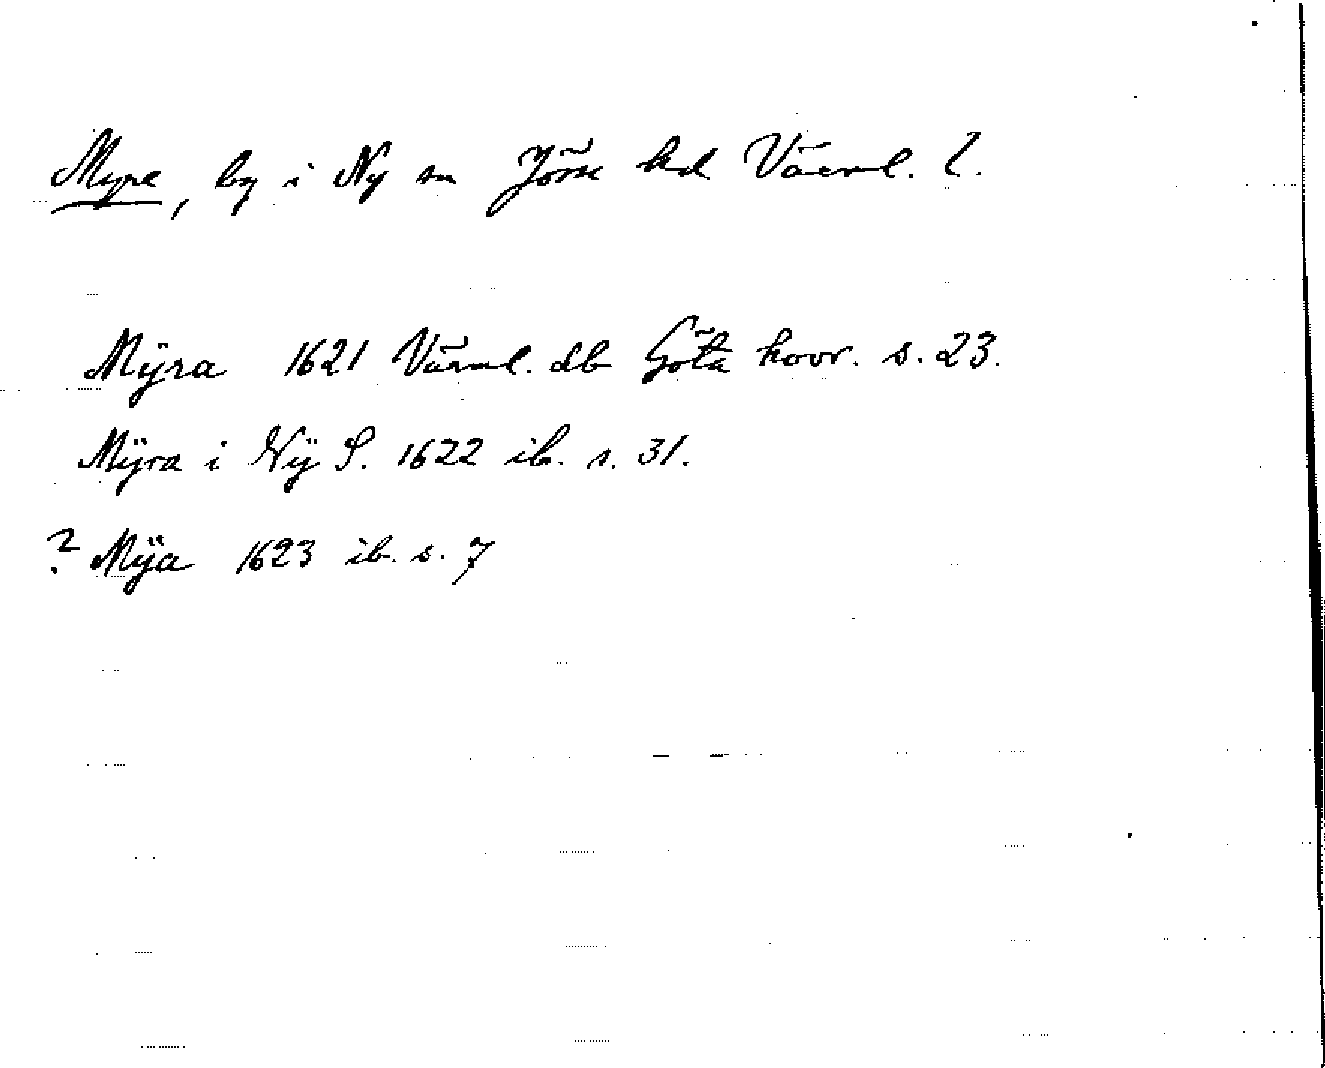 Myre, by i Ny sn Jösse hd Värml. l.
Mÿra 1621 Värml. db Göta hovr. s. 23.
Mÿra i Nÿ S. 1622 ib. s. 31.
? Mÿa 1623 ib. s. 7